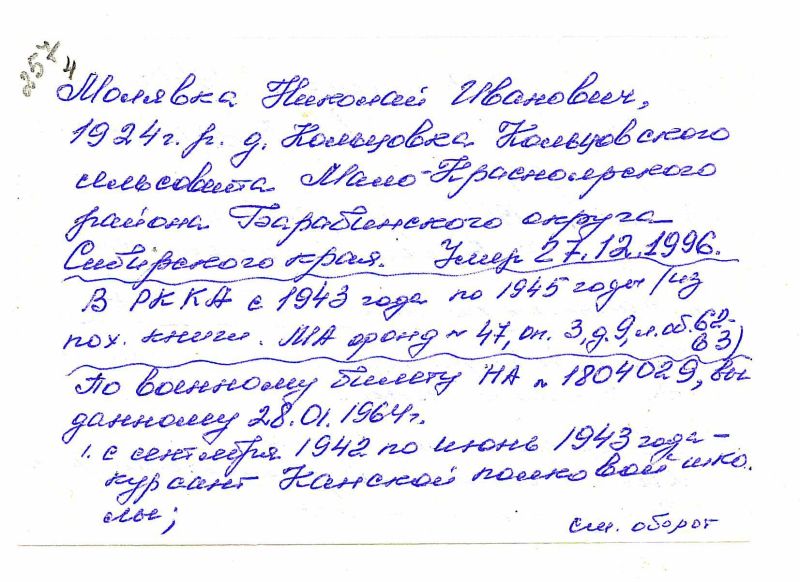 257
4
Молявка Николай Иванович,
1924 г. р. д. Кольцовка Кольцовского
сельсовета Мало-Красноярского
района Барабинского округа
Сибирского края. Умер 27.12.1996.
В РККА с 1943 года по 1945 годы /из
пох. книги. МА фонд № 47, оп. 3, д. 9, л. об. 62-
63)
По военному билету НА № 1804029, вы
данному 28.01.1964г.
1. с сентября 1942 по июнь 1943 года -
курсант Канской полковой шко.
лы;
см. оборот